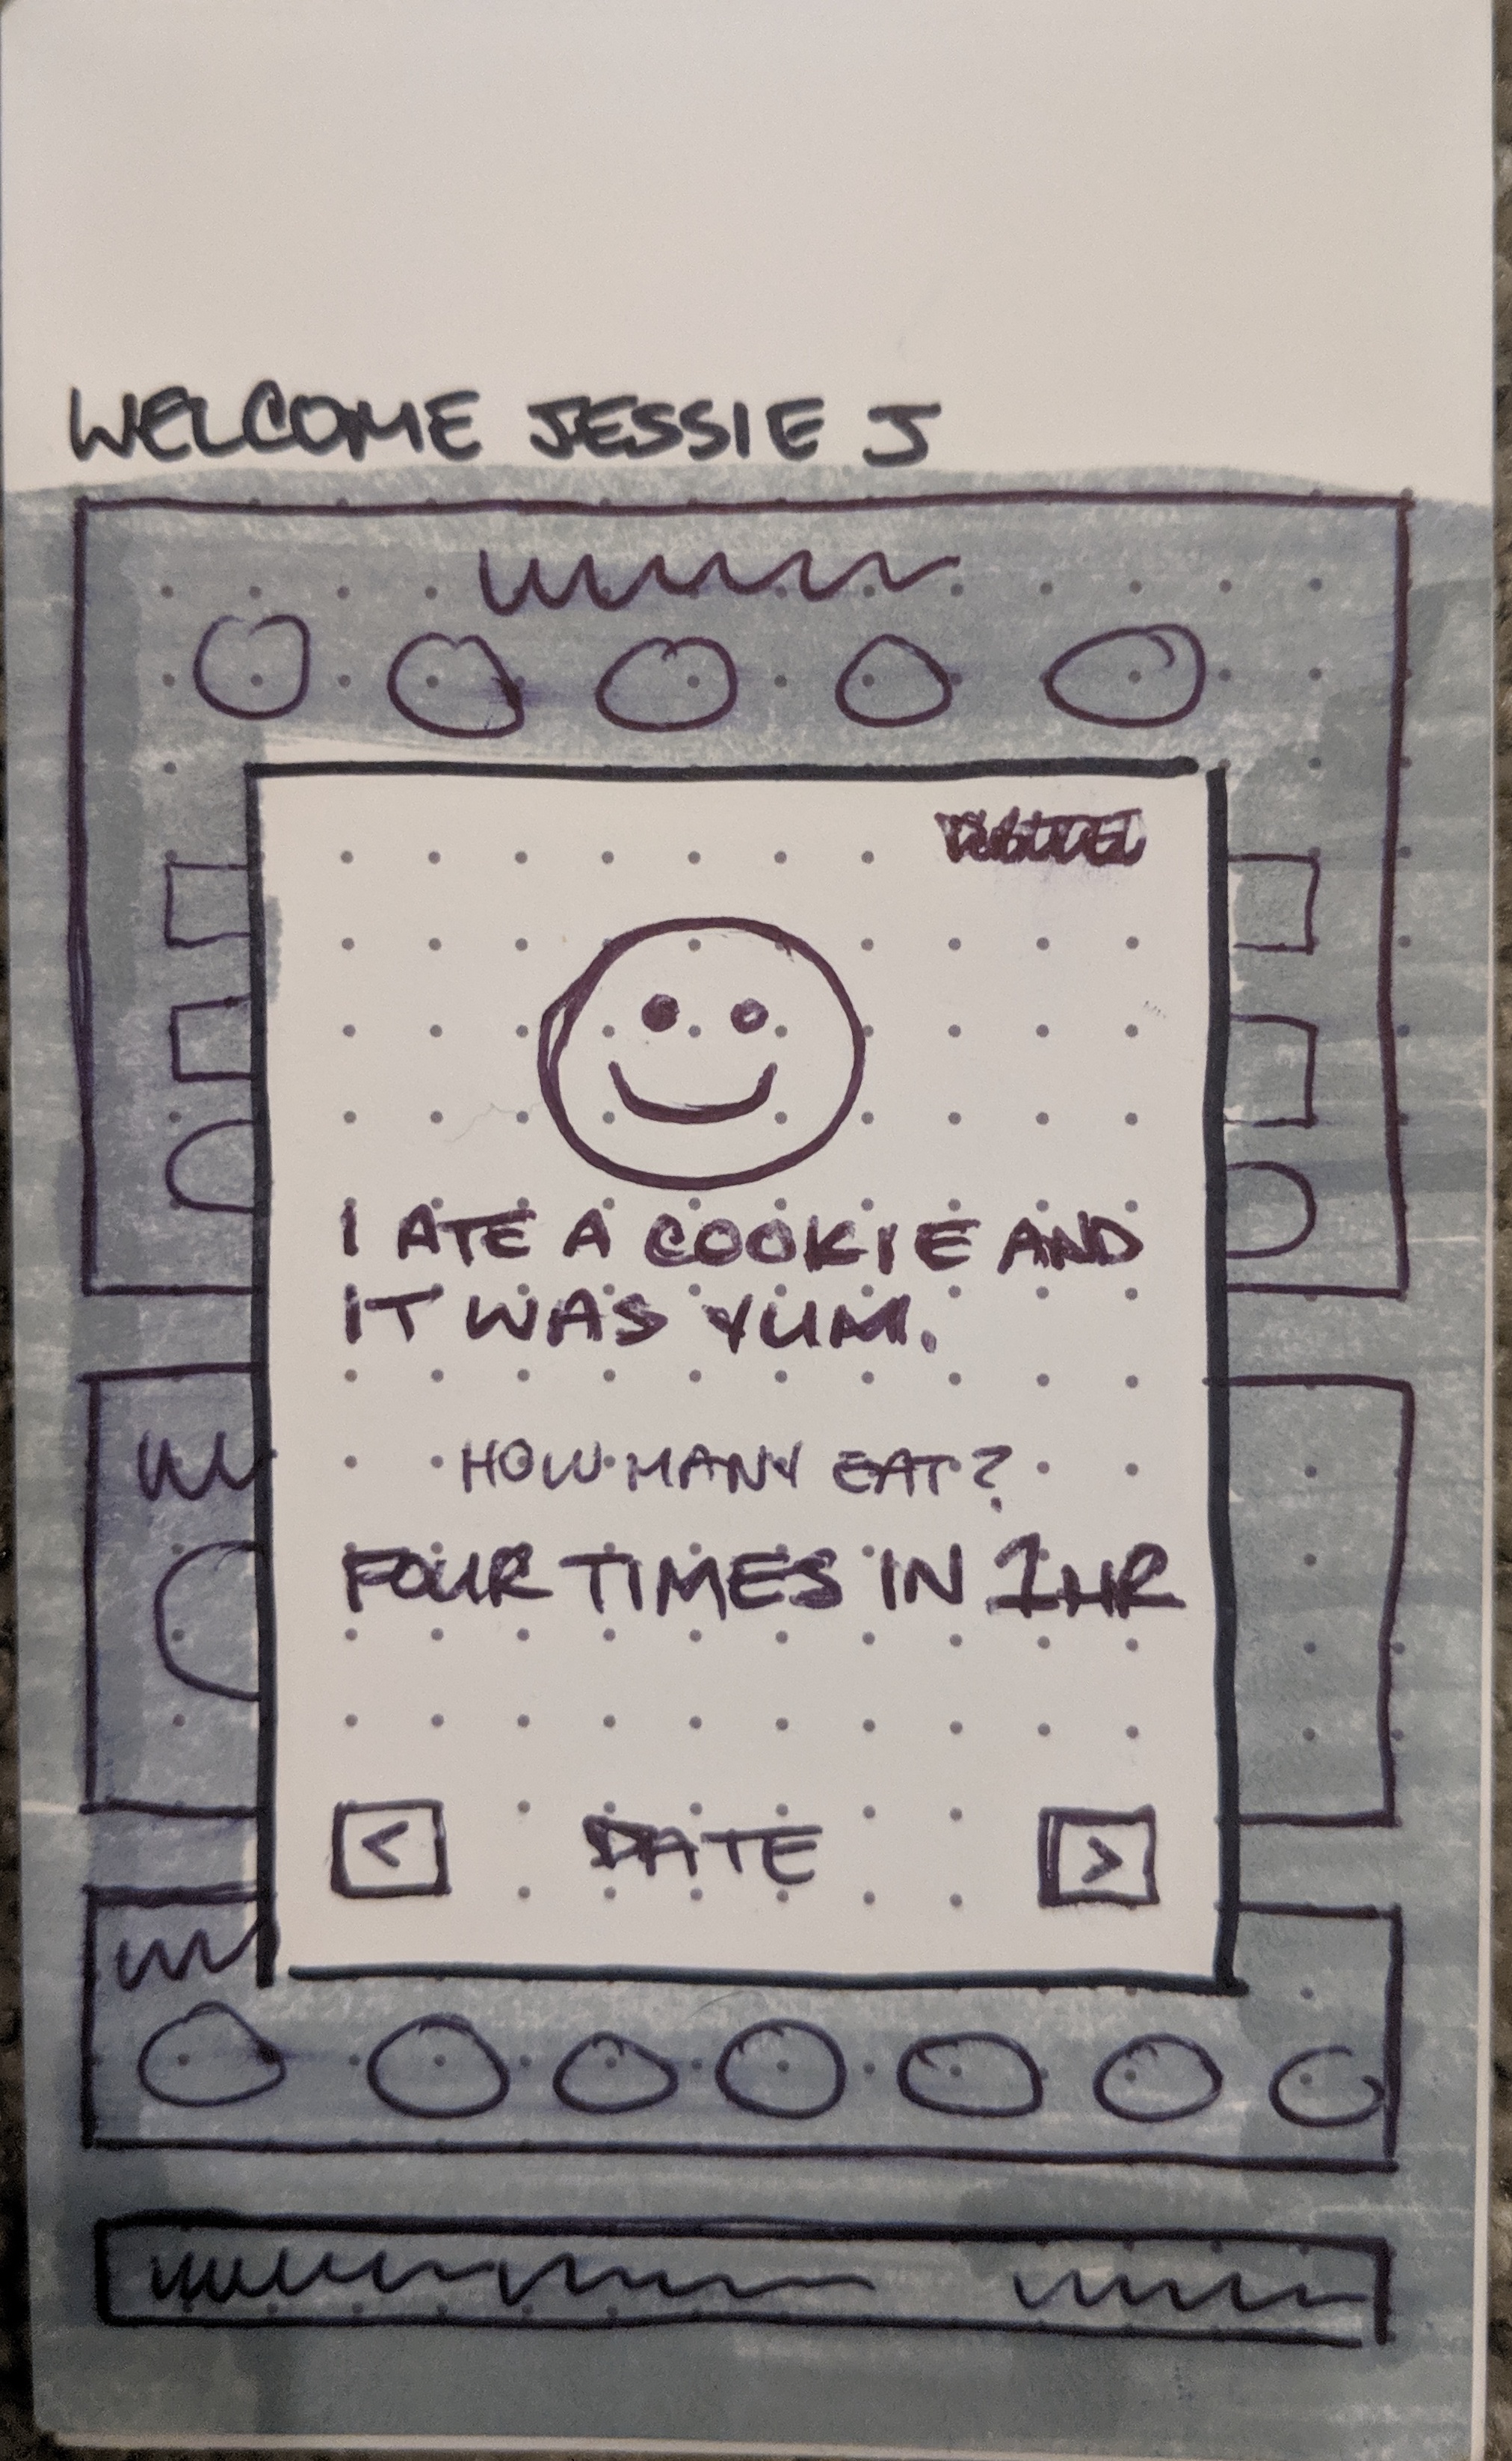 WELCOME JESSIE J
I ATE A COOKIE AND
IT WAS YUM.
HOW MANY EAT?
FOUR TIMES IN 1HR
< DATE >